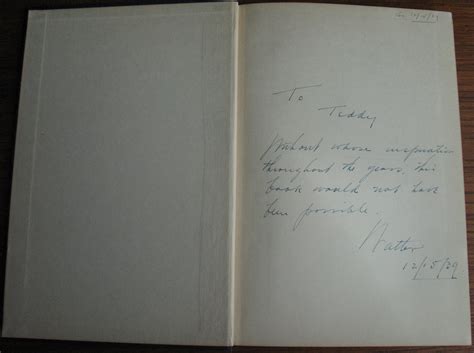 To
Teddy
Without whose inspiration
throughout the years, this
book would not have
been possible.
Walter
12/15/39